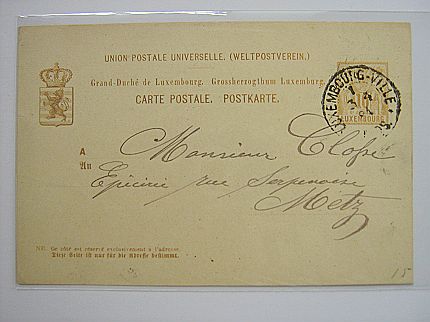 UNION POSTALE UNIVERSELLE. (WELTPOSTVEREIN.)
Grand-Duché de Luxembourg. Grossherzogthum Luxemburg.
CARTE POSTALE. POSTKARTE.
LUXEMBOURG-VILLE
LUXEMBOURG
A
An
Monsieur
Epicerie rue Serpenoise
Metz
NB. Ce côté est réservé exclusivement à l'adresse.
Diese Seite ist nur für die Adresse bestimmt.
15